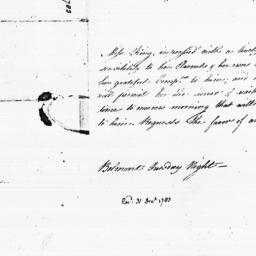 Miss Livy, impressed with a lively
sensibility to her Parents & her own
her grateful Comp.ts to him; and
and permit her
time to morrow morning that will
to him. Requests The favor of an
Belmont Tuesday Night —
Rec.d 31 Dec.r 1783